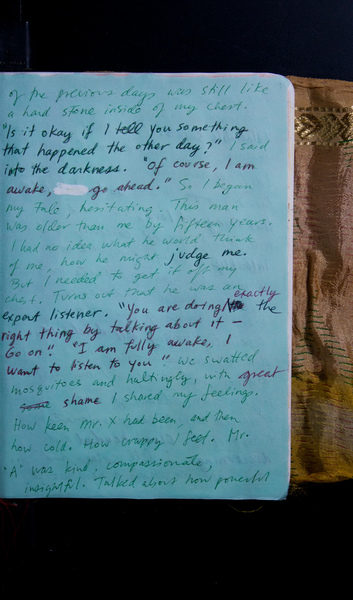 of the previous days was still like
a hard stone inside of my chest.
"Is it okay if I tell you something
that happened the other day?" I said
into the darkness. "Of course, I am
awake, go ahead." So I began
my tale, hesitating. This man
was older than me by fifteen years.
I had no idea what he would think
of me, how he might judge me.
But I needed to get it off my
chest. Turns out that he was an
expert listener. "You are doing exactly the
right thing by talking about it —
Go on!" "I am fully awake, I
want to listen to you" We swatted
mosquitoes and haltingly, with great
shame I shared my feelings.
How keen Mr. X had been, and then
how cold. How crappy I feel. Mr.
'A' was kind, compassionate,
insightful. Talked about how powerful